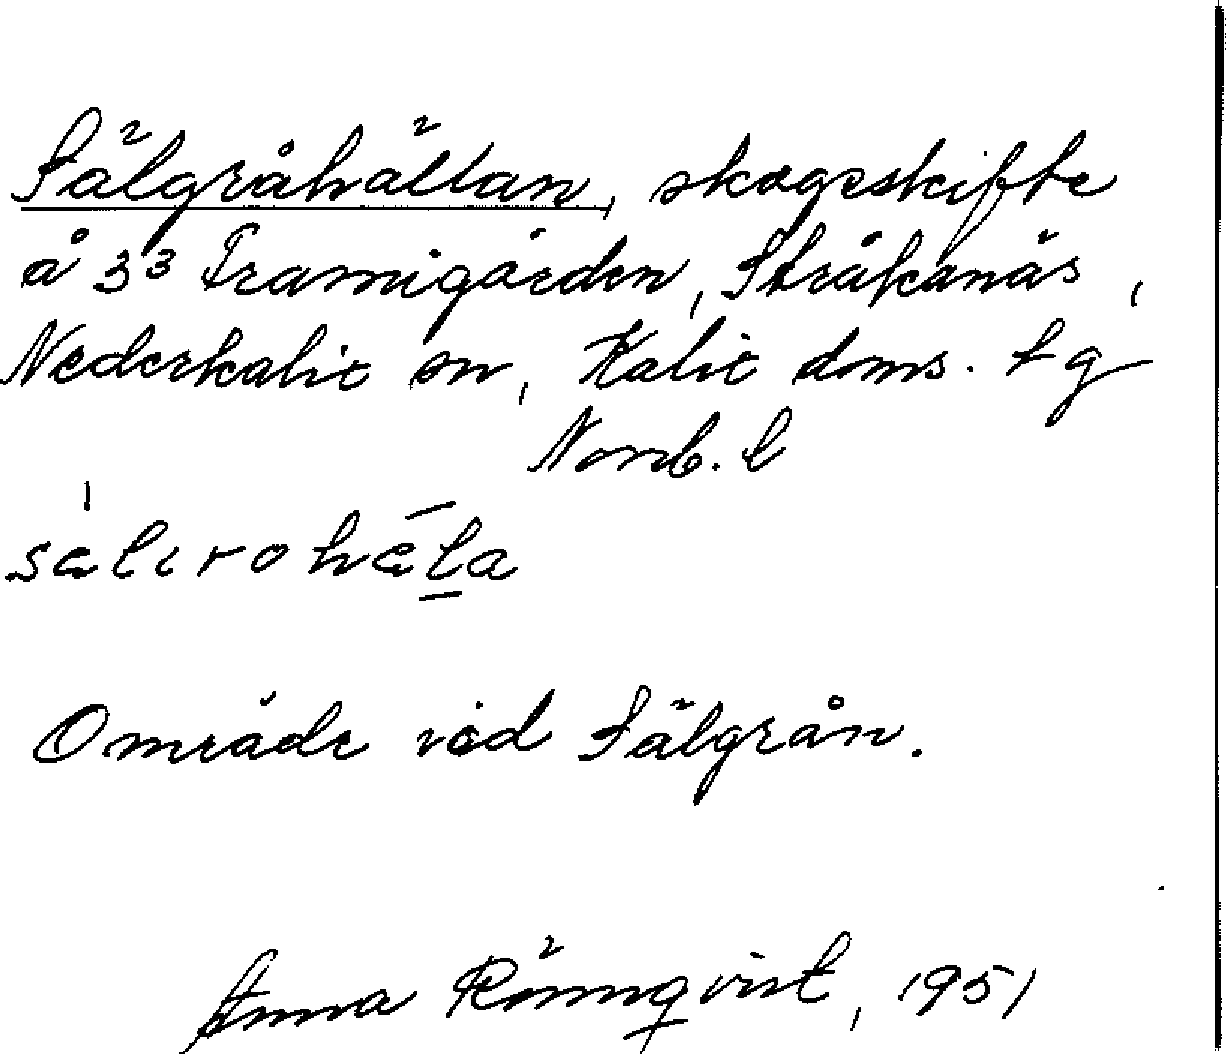 Sälgråhällan, skogsskifte
å 3³ Framigården, Stråkanäs,
Nederkalix sn, Kalix doms. tg
Norrb. l
Område vid Sälgrån.
Anna Rönnqvist, 1951